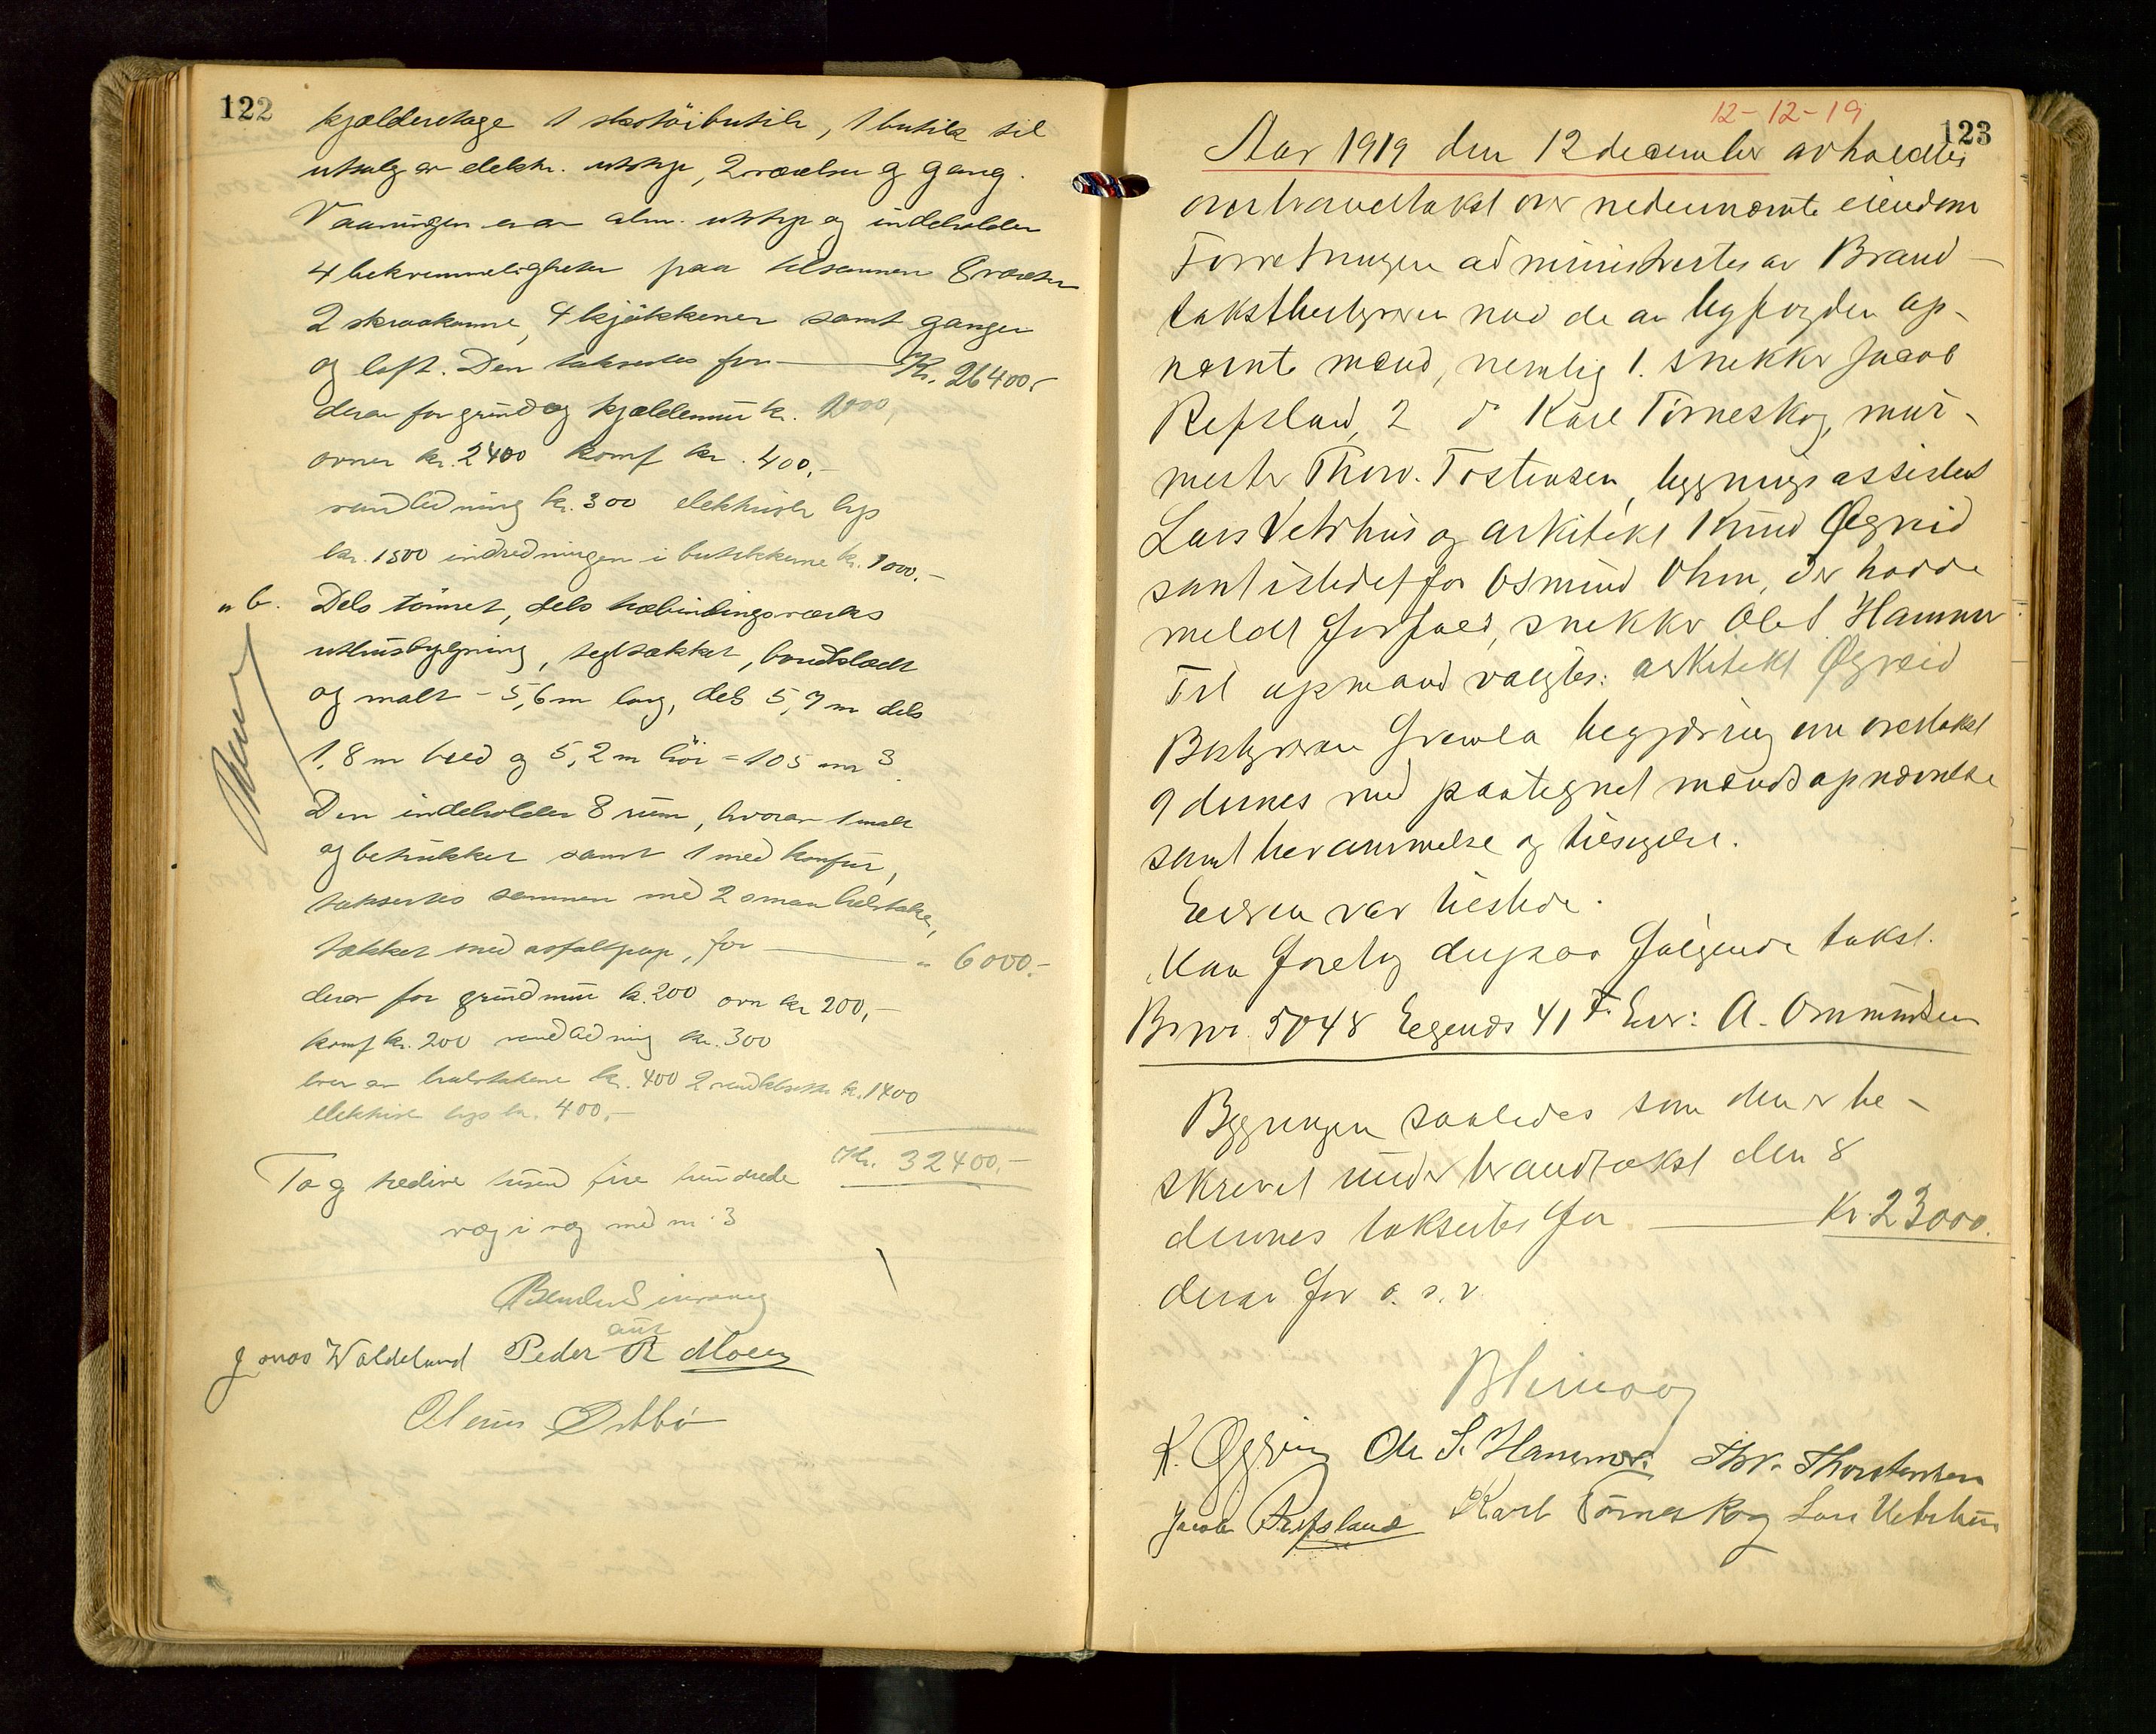 122
kjælderetage 1 skotöibutik, 1 butik til
utsalg av elektr. utstyr, 2 værelser og gang.
Vaaningen er av alm. utstyr og indeholder
4 bekvemmeligheter paa tilsammen 8 værelser
2 skraakamre, 4 kjökkener samt ganger
og loft. Den takseres for Kr. 26400,-
derav for grund og kjældermur kr. 2000,
ovner kr. 2400 komf kr. 400,-
vandledning kr. 300 elektrisk lys
kr. 1500 indredningen i butikkerne kr. 1000.-
" b. Dels tömret, dels træbindingsverks
uthusbygning, tegltækket, bordklædt
og malt - 5,6 m lang, dels 5,7 m dels
1,8 m bred og 5,2 m höi = 105 m 3.
Den indeholder 8 rum, hvorav 1 malt
og betrukket samt 1 med komfur,
takseres sammen med 2 smaa halvtake,
tækket med asfaltpap, for " 6000.-
derav for grundmur kr. 200 ovn kr 200,-
komf kr. 200 vandledning kr. 300
hver av halvtakene kr. 400 2 vandklosetter kr. 1400
elektrisk lys kr. 400,-
Kr. 32400,-
To og tredive tusind fire hundrede
væg i væg med nr. 3
Jonas Waldeland Peder R Moen
Olenius Østbö
12-12-19
123
Aar 1919 den 12 december avholdtes
overbrandtakst over nedennævnte eiendom
Forretningen administrertes av Brand-
takstbestyreren med de av byfogden op-
nævnte mænd, nemlig 1. snekker Jacob
Refsland, 2 do Karl Törneskog, mur-
mester Thorv. Tostensen, bygningsassistent
Lars Vetrhus og arkitekt Knud Øgreid
samt istedetfor Osmund Ohm, der hadde
meldt forfald, snekker Ole S Hammer
Til opmand valgtes: arkitekt Øgreid
Bestyreren fremla begjæring om overtakst
9 dennes med paategnet mandsopnævnelse
samt berammelse og tilsigelse.
Eieren var tilstede.
Man foretog derpaa følgende takst.
Br. nr. 5048 Eegends 41 F. Eier: A. Ommundsen
Bygningen saaledes som den er be-
skrevet under brandtakst den 8
dennes takseres for Kr. 23000.
derav for o. s. v.
K. Øgreid Ole S. Hammer. Thv. Thorstensen
Jacob Refsland Karl Törneskog Lars Vetrhus